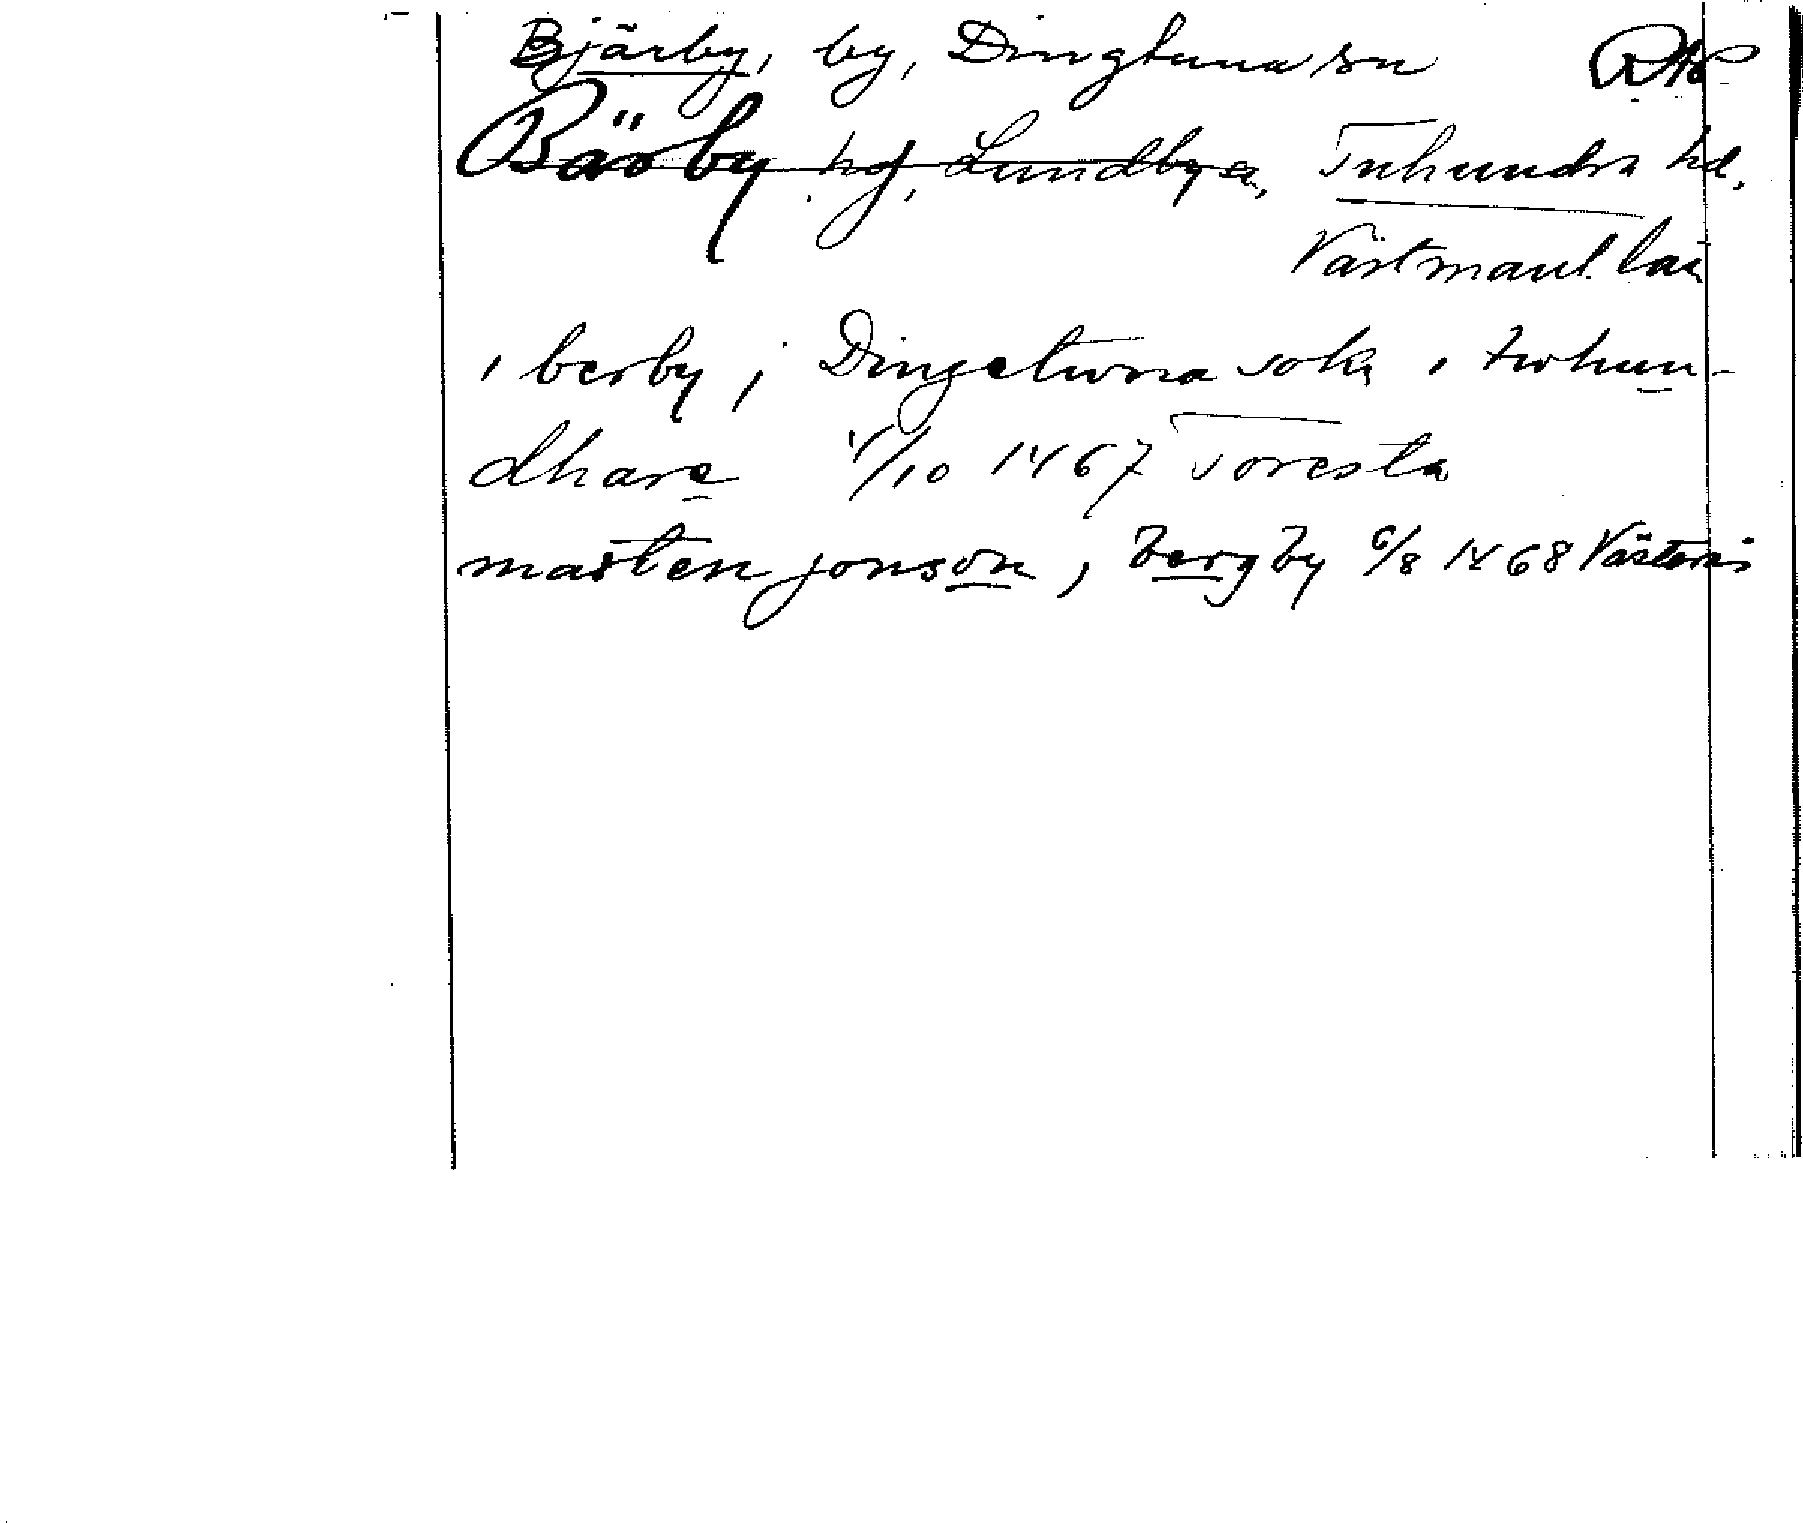 Bjärby, by, Dingtuna sn RAP
Bärby hg, Lundby sn, Tuhundra hd,
Västmanl. län
i berby j Dingetwna sokn i twhun-
dhare 4/10 1467 Toresta
marten jonson j bergby 6/8 1468 Västerås